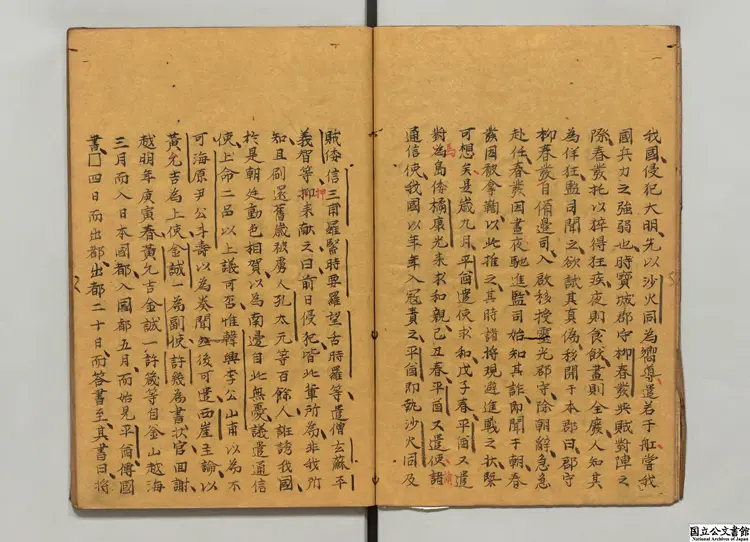 我國侵犯大明先以沙火同為嚮導還若于舡嘗我
國兵力之強弱也時寶城郡守柳春發與賊對陣之
際春發托以猝得狂疾夜則食飲晝則全廢人知其
為佯狂監司聞之欲試其真偽移関于本郡曰郡守
柳春發自備邊司入 啟移授靈光郡守除朝辭急急
赴任春發因晝夜馳進監司始知其詐即聞于朝春
發因被拿鞫以此推之其時諸將規避進戰之狀槩
可想矣是歲九月平酋遣使求和戊子春平酋又遣
對馬島倭橘康光来求和親己丑春平酋又遣使請
通信使我國以羊年入寇責之平酋即執沙火同及
賊倭信三甫羅緊時要羅望古時羅等遣僧玄蘇平
義智等押来献之曰前日侵犯皆此軰所為非我所
知且刷還舊歲被虜人孔太元等百餘人誑誘我國
於是朝廷動色相賀以為南邊自此無憂議遣通信
使上命二品以上議可否惟韓興李公山甫以為不
可海原尹公斗壽以為奏聞然後可遣西崖主論以
黃允吉為上使金誠一為副使許筬為書狀官回謝
越明年庚寅春黃允吉金誠一許筬等自釜山越海
三月而入日本國都入國都五月而始見平酋傳國
書四日而出都出都二十日而答書至其書曰將
国立公文書館
National Archives of Japan